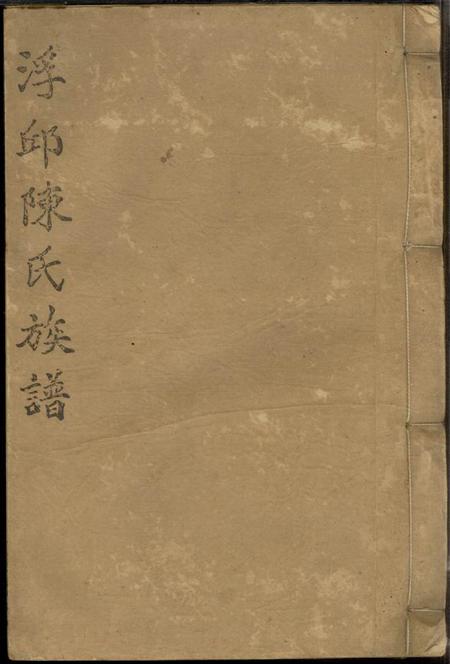 浮邱陳氏族譜